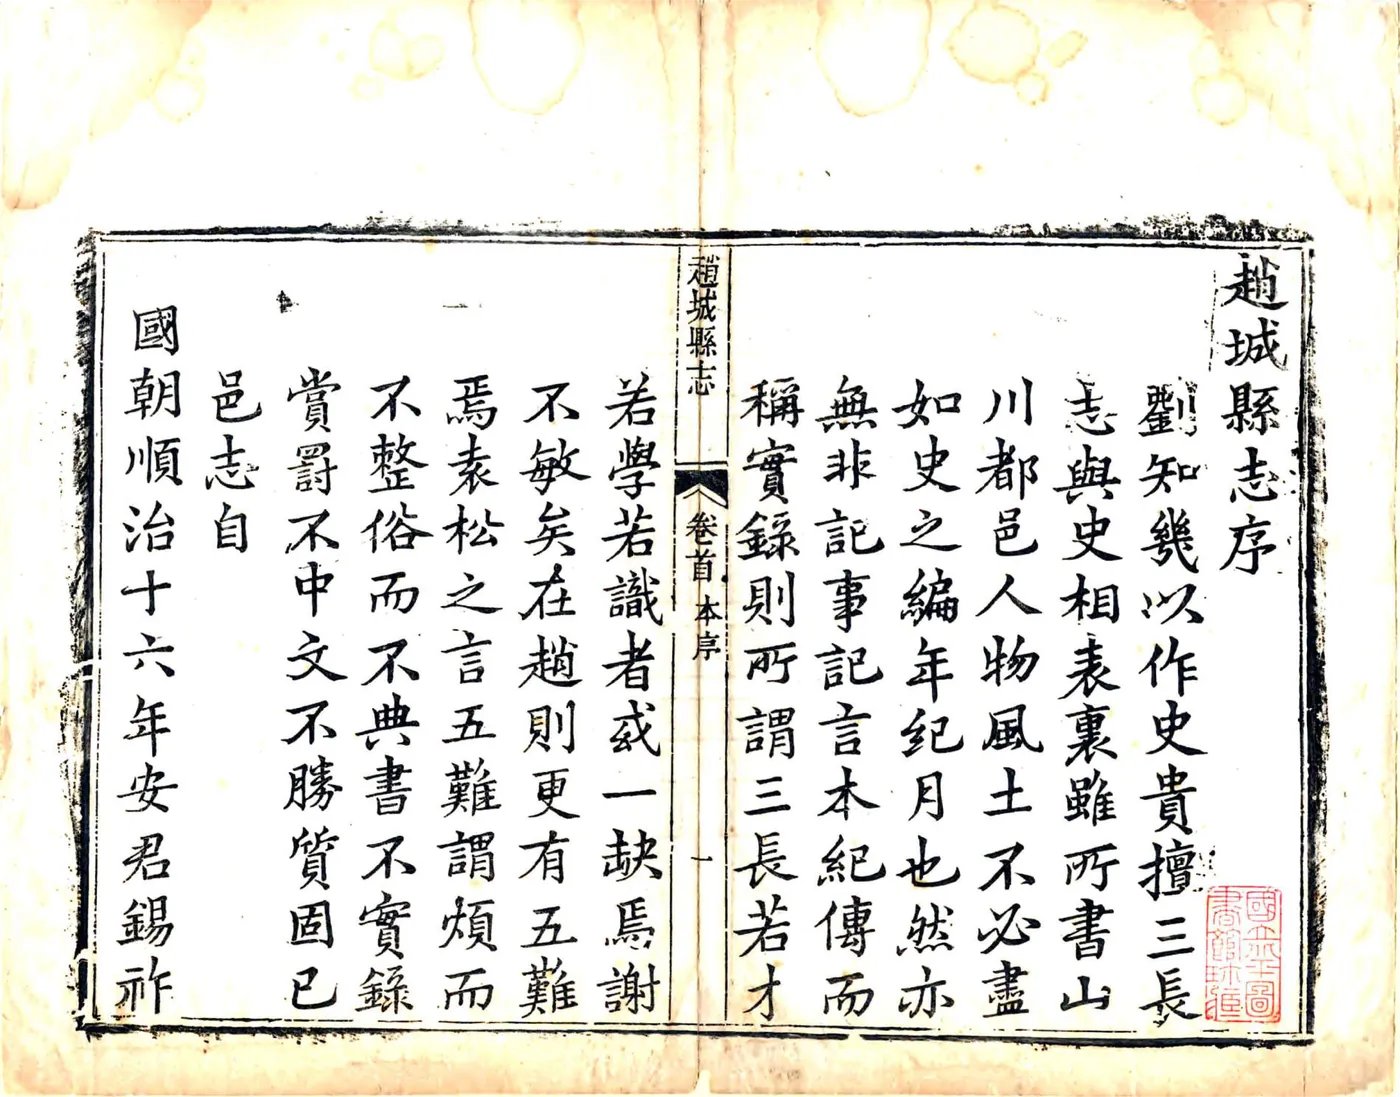 趙城縣志序
劉知幾以作史貴擅三長
志與史相表裏雖所書山
川都邑人物風土不必盡
如史之編年紀月也然亦
無非記事記言本紀傳而
稱實錄則所謂三長若才
趙城縣志
卷首
本序
一
若學若識者或一缺焉謝
不敏矣在趙則更有五難
焉袁松之言五難謂煩而
不整俗而不典書不實錄
賞罸不中文不勝質固已
邑志自
國朝順治十六年安君錫祚
國立北平圖書館珍藏